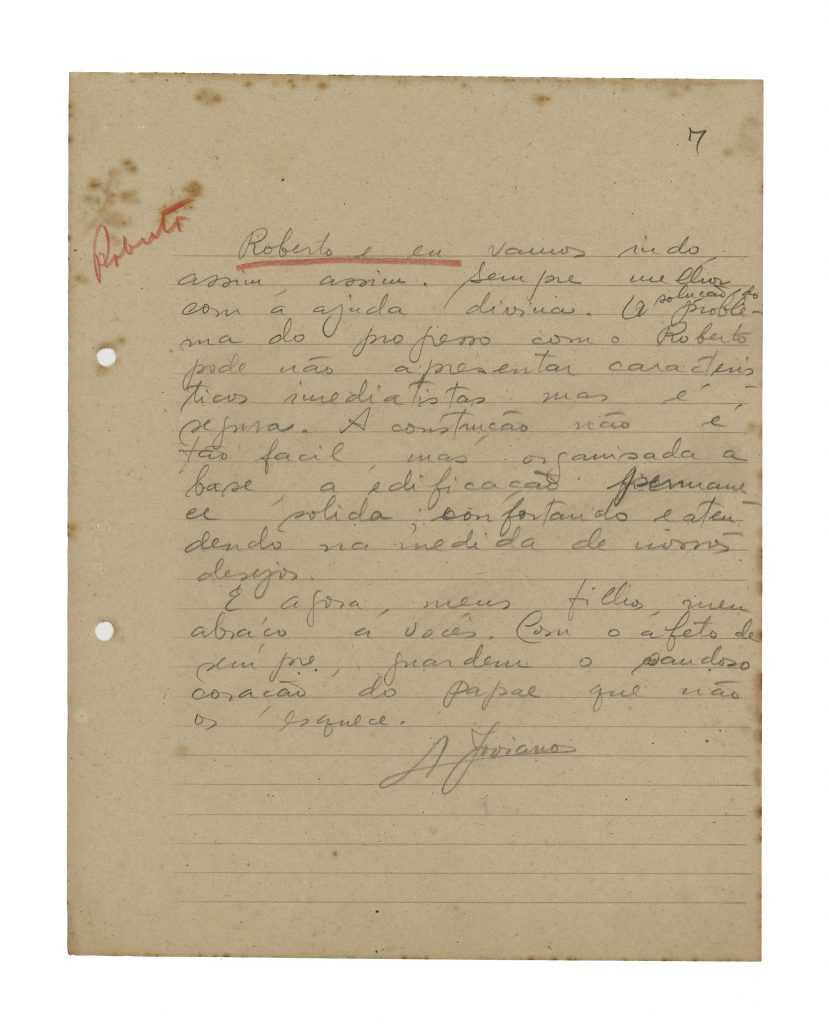 7
Roberto
Roberto e eu vamos indo,
assim, assim. Sempre melhor
com a ajuda divina. A solução do proble-
ma do progresso com o Roberto
pode não apresentar caracteris
ticos imediatistas mas é
segura. A construção não é
tão facil, mas, organisada a
base, a edificação permane
ce solida confortando e aten
dendo na medida de nossos
desejos.
E agora, meus filhos, meu
abraço a vocês. Com o afeto de
sempre, guardem o saudoso
coração do papae que não
os esquece.
A Joviano